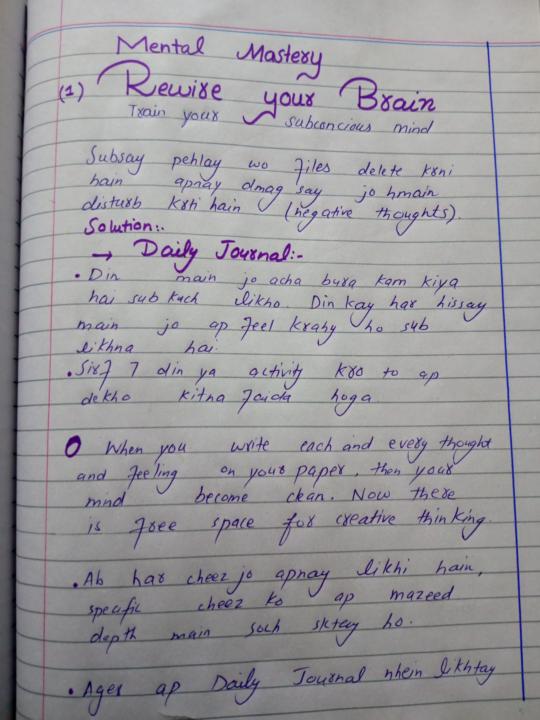 Mental Mastery
(1) Rewire your Brain
Train your subconcious mind
Subsay pehlay wo files delete krni
hain apnay dmag say jo hmain
disturb krti hain (negative thoughts).
Solution:-
→ Daily Journal:-
• Din main jo acha bura kam kiya
hai sub kuch likho. Din kay har hissay
main jo ap feel krahy ho sub
likhna hai.
• Sirf 7 din ya activity kro to ap
dekho kitna faida hoga
O When you write each and every thought
and feeling on your paper, then your
mnd become clean. Now there
is free space for creative thinking.
• Ab har cheez jo apnay likhi hain,
specific cheez ko ap mazeed
depth main soch sktay ho.
• Ager ap Daily Journal nhein likhtay